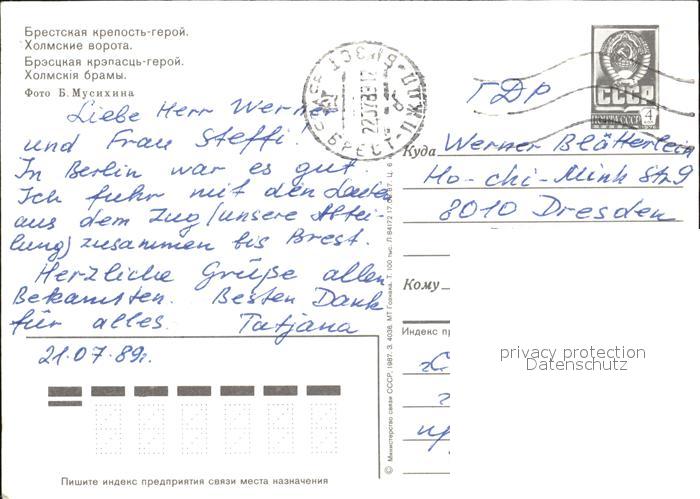 Брестская крепость-герой.
Холмские ворота.
Брэсцкая крэпасць-герой.
Холмскія брамы.
Фото Б. Мусихина
Liebe Herr Werner
und Frau Steffi!
In Berlin war es gut.
Ich fuhr mit den Leuten
aus dem Zug (unsere Abtei-
lung) zusammen bis Brest.
Herzliche Grüße allen
Bekannten. Besten Dank
für alles. Tatjana
21.07.89г.
Пишите индекс предприятия связи места назначения
© Министерство связи СССР, 1987. З. 4036. МТ Гознака. Т. 100 тыс.
БРЕСТ
СССР
4
ГДР
Куда Werner Blätterlein
Ho-chi-Minh Str. 9
8010 Dresden
Кому
Индекс пр
privacy protection
Datenschutz